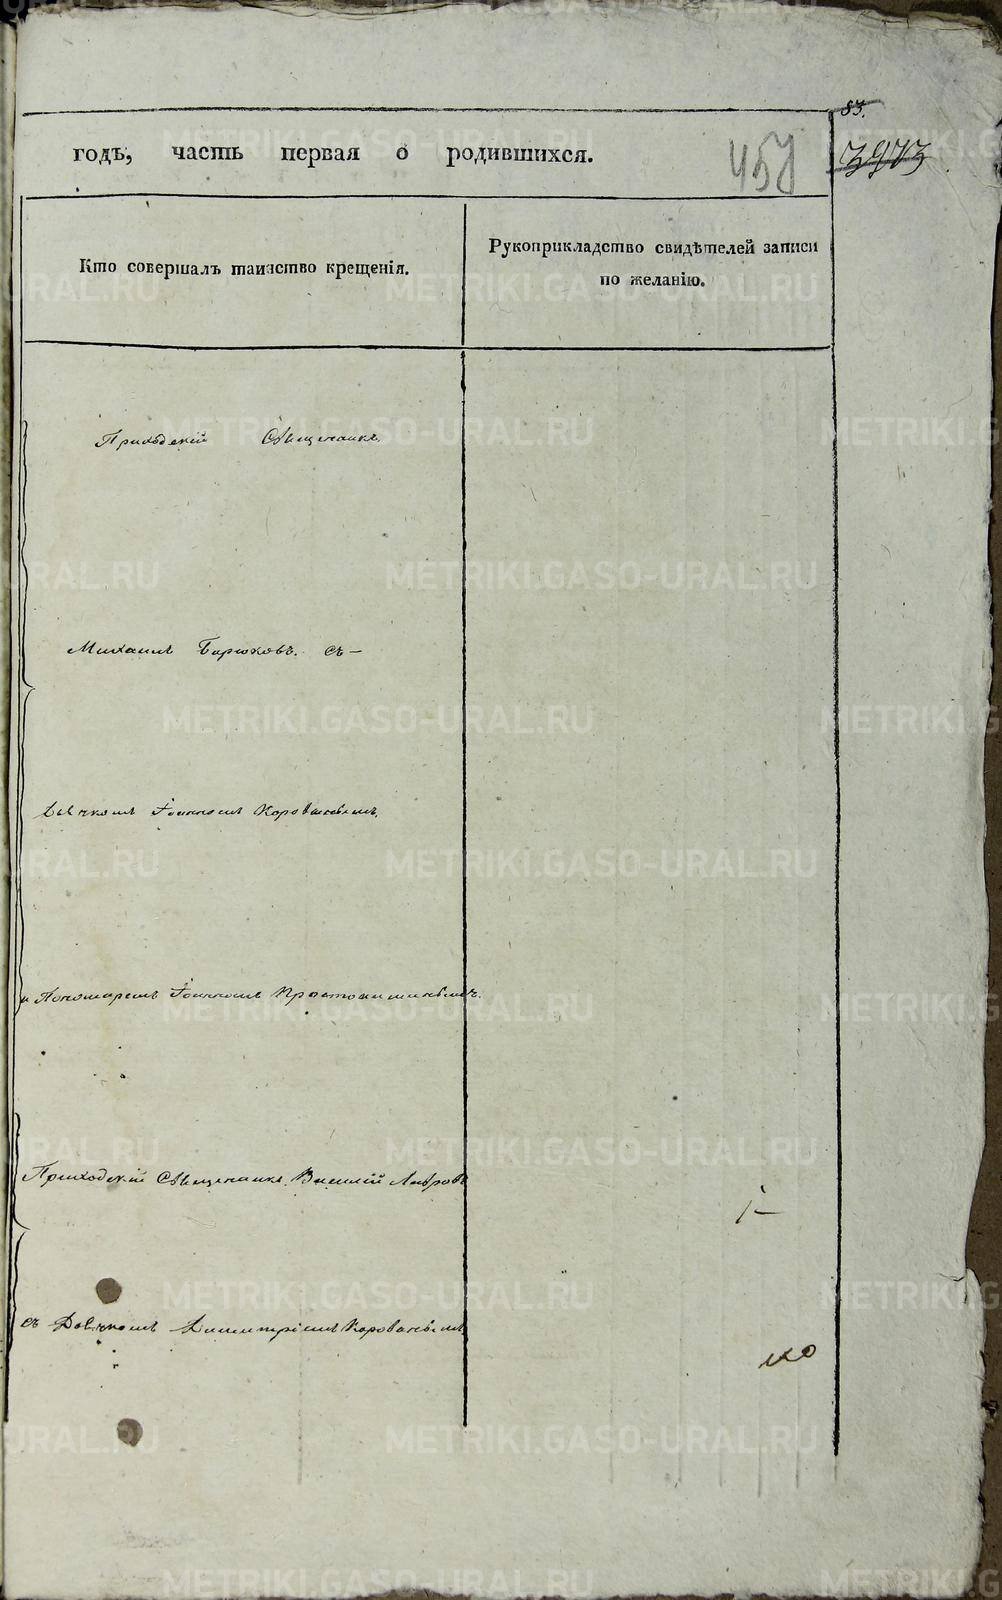 83.
годъ, часть первая о родившихся.
457
3973
Кто совершалъ таинство крещенія.
Рукоприкладство свидѣтелей записи
по желанію.
Приходскій Священникъ
Михаилъ Бирюковъ. съ—
Дьячкомъ Іоанномъ Коровинымъ
и Пономаремъ Іоанномъ
Приходскій Священникъ Василій Лавровъ
съ Дьячкомъ Димитріемъ
METRIKI.GASO-URAL.RU